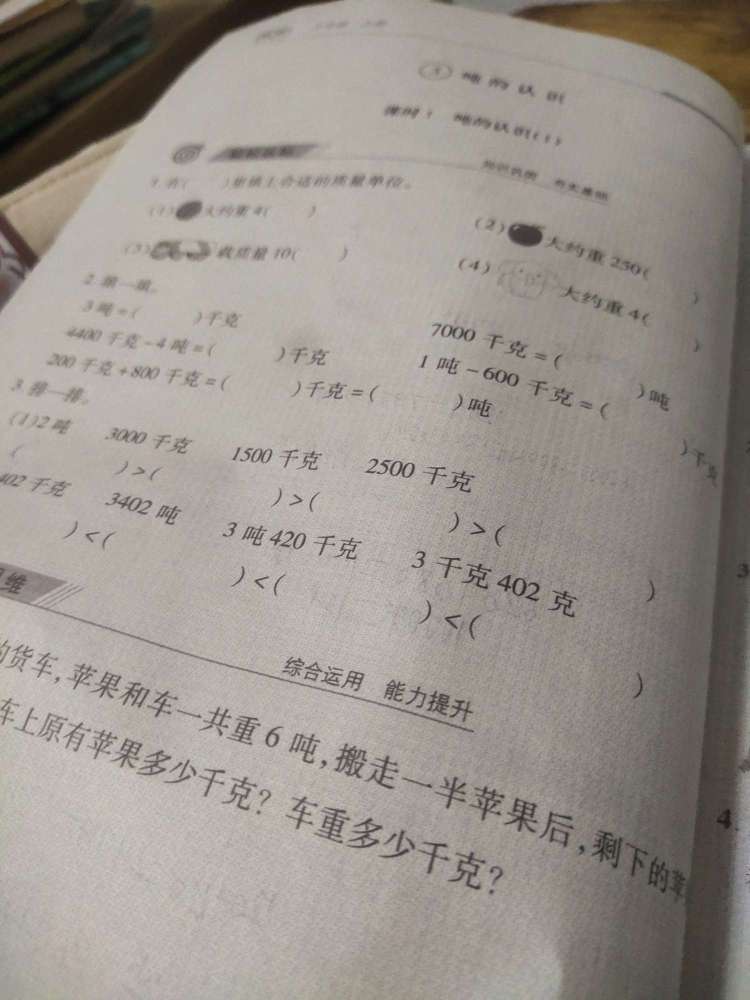 ① 吨的认识
课时1 吨的认识(1)
知识巩固 夯实基础
1.在( )里填上合适的质量单位。
(1) 大约重4( ) (2) 大约重250( )
(3) 载质量10( ) (4) 大约重4( )
2.填一填。
3吨=( )千克 7000千克=( )吨
4400千克-4吨=( )千克 1吨-600千克=( )千克
200千克+800千克=( )千克=( )吨
3.排一排。
(1)2吨 3000千克 1500千克 2500千克
( )>( )>( )>( )
402千克 3402吨 3吨420千克 3千克402克
)<( )<( )<( )
维
综合运用 能力提升
的货车,苹果和车一共重6吨,搬走一半苹果后,剩下的苹
车上原有苹果多少千克?车重多少千克?
3
4